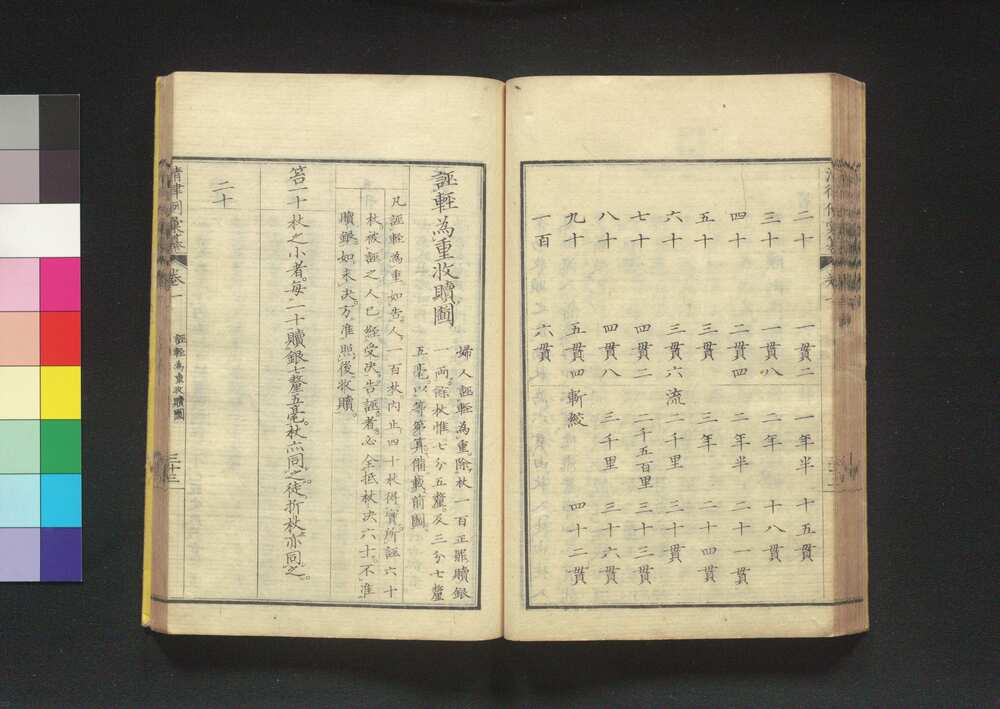 二十 一貫二 一年半 十五貫
三十 一貫八 二年 十八貫
四十 二貫四 二年半 二十一貫
五十 三貫 三年 二十四貫
六十 三貫六 流 二千里 三十貫
七十 四貫二 二千五百里 三十三貫
八十 四貫八 三千里 三十六貫
九十 五貫四 斬絞 四十二貫
一百 六貫
誣輕為重收贖圖
婦人誣輕為重、除杖一百正罪贖銀
一兩。餘杖惟七分五釐、及三分七釐
五毫、以等第算備載前圖
凡誣輕為重、如告人一百杖内止四十杖得實所誣六十
杖被誣之人已經受決告誣者、必全抵杖決六十、不准
贖銀、如未決方准照後收贖
笞一十杖之小者。每二十贖銀七釐五毫。杖亦同之。徒折杖亦同之。
二十
卷一
誣輕為重收贖圖
三十三